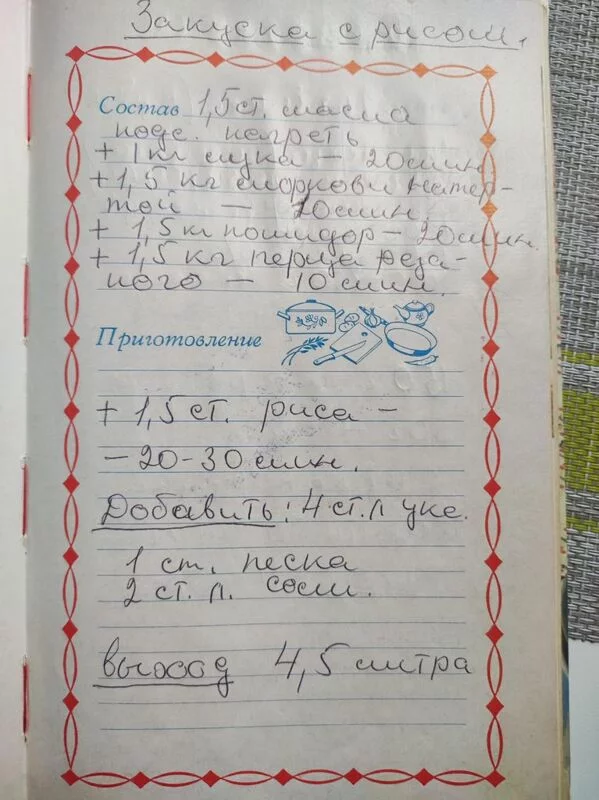 Закуска с рисом.
Состав 1,5 ст. масла
подс. нагреть
+ 1 кг лука – 20 мин.
+ 1,5 кг моркови натер-
той – 20 мин.
+ 1,5 кг помидор – 20 мин.
+ 1,5 кг перца реза-
ного – 10 мин.
Приготовление
+ 1,5 ст. риса –
– 20-30 мин.
Добавить: 4 ст. л уке.
1 ст. песка
2 ст. л. соли.
выход 4,5 литра